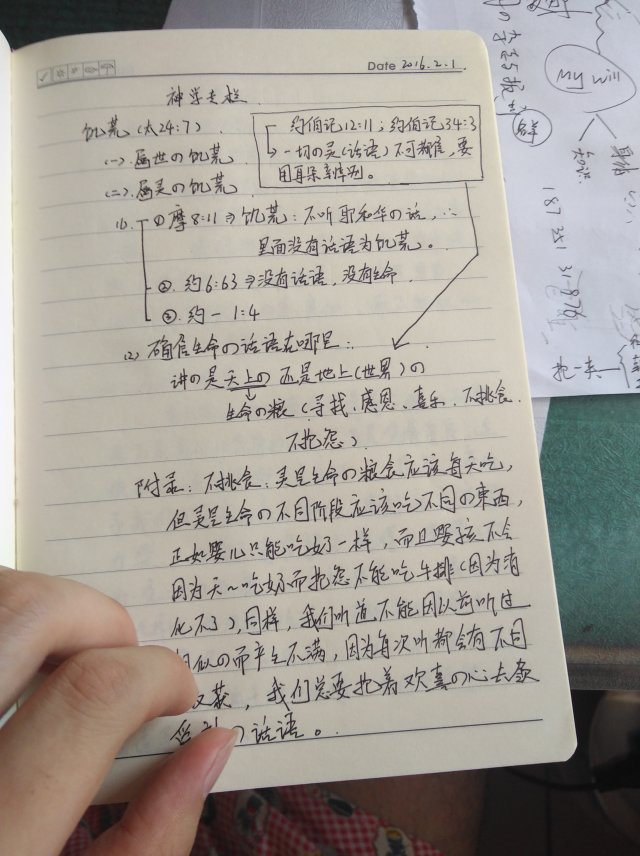 Date 2016.2.1
神学专栏
饥荒(太24:7)
约伯记12:11;约伯记34:3
一切の灵(话语)不可都信,要
用耳朵来辨别。
(一)属世の饥荒
(二)属灵の饥荒
(1) ①摩8:11⇒饥荒:不听耶和华の话,∴
里面没有话语为饥荒。
②.约6:63⇒没有话语,没有生命
③.约一 1:4
(2) 确信生命の话语在哪里:
讲の是天上の还是地上(世界)の
生命の粮(寻找、感恩、喜乐、不挑食、
不抱怨)
附录:不挑食:灵里生命の粮食应该每天吃,
但灵里生命の不同阶段应该吃不同の東西,
正如婴儿只能吃奶一样,而且婴孩不会
因为天~吃奶而抱怨不能吃牛排(因为消
化不了),同样,我们听道不能因以前听过
相似の而产生不满,因为每次听都会有不同
收获,我们总要抱着欢喜の心去
の话语。
my will
知识